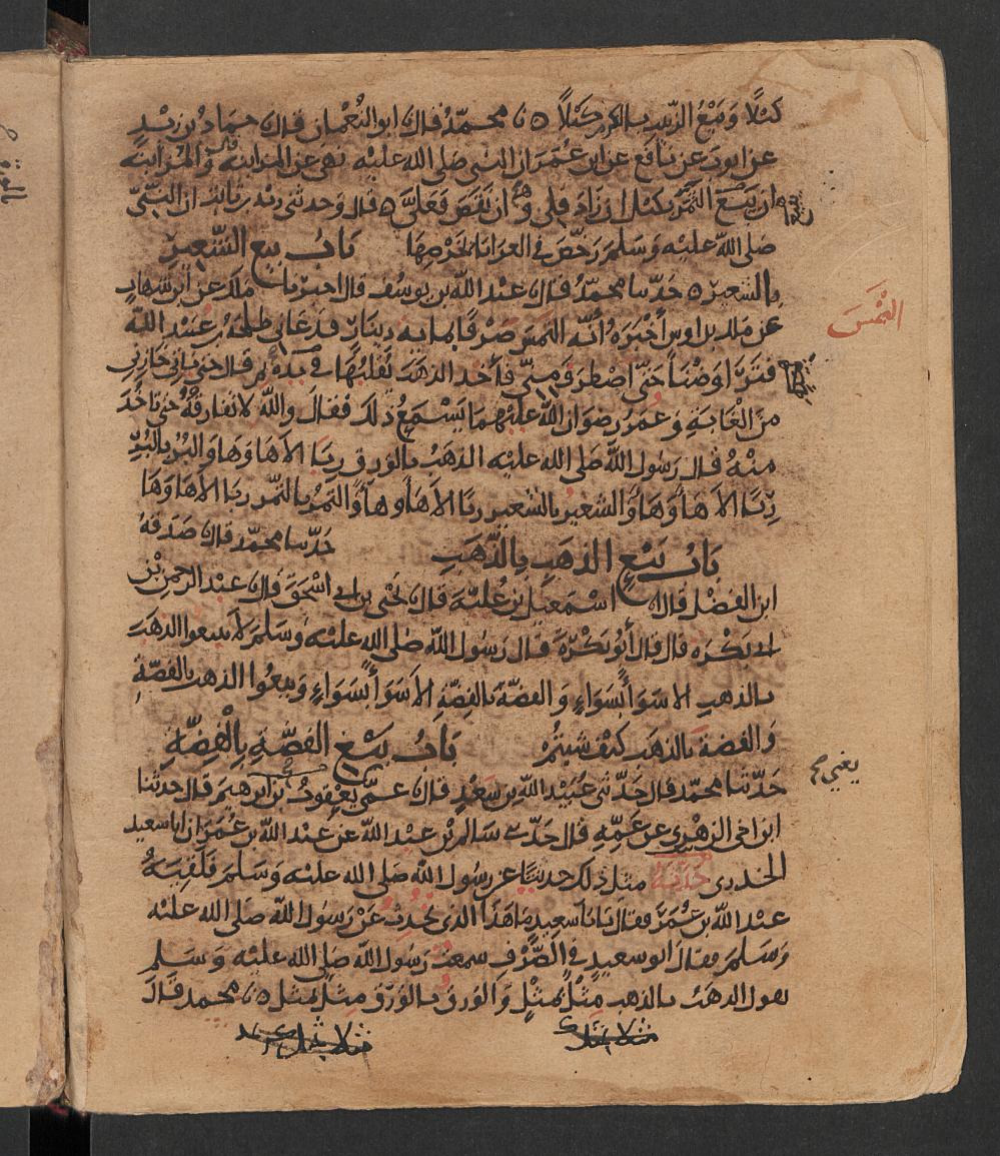 كيلا وبيع الزبيب بالكرم كيلا ٥ نا محمد قال نا ابو النعمان قال نا حماد بن زيد
عن ايوب عن نافع عن ابن عمر ان النبي صلى الله عليه نهى عن المزابنة قال والمزابنة
ان يبيع الثمر بكيل ان زاد فلي وان نقص فعلي ٥ قال وحدثني زيد بن ثابت ان النبي
صلى الله عليه وسلم رخص في العرايا بخرصها باب بيع الشعير
بالشعير ٥ حدثنا محمد قال نا عبد الله بن يوسف قال اخبرنا ملك عن ابن شهاب
عن ملك بن اوس أخبره أنه التمس صرفا بمايه دينار فدعاني طلحة بن عبيد الله
فتراوضنا حتى اصطرف مني فأخذ الذهب يقلبها في يده ثم قال حتى ياتي خازني
من الغابة وعمر رضوان الله عليهما يسمع ذلك فقال والله لا تفارقه حتى تاخذ
منه قال رسول الله صلى الله عليه الذهب بالورق ربا الا ها وها والبر بالبر
ربا الا ها وها والشعير بالشعير ربا الا ها وها والتمر بالتمر ربا الا ها وها
باب بيع الذهب بالذهب حدثنا محمد قال نا صدقة
ابن الفضل قال نا اسمعيل بن علية قال نا يحيى بن ابي اسحق قال نا عبد الرحمن بن
ابي بكره قال قال أبو بكرة قال رسول الله صلى الله عليه وسلم لا تبيعوا الذهب
بالذهب الا سوأ بسواء والفضة بالفضة الا سوأ بسواء وبيعوا الذهب بالفضة
والفضة بالذهب كيف شيتم باب بيع الفضة بالفضة
حدثنا محمد قال حدثني عبيد الله بن سعد قال نا عمي يعقوب بن ابرهيم قال حدثنا
ابن اخي الزهري عن عمه قال حدثني سالم بن عبد الله عن عبد الله بن عمر ان ابا سعيد
الخدري حدثه مثل ذلك حديثا عن رسول الله صلى الله عليه وسلم فلقيه
عبد الله بن عمر فقال يا ابا سعيد ما هذا الذي تحدث عن رسول الله صلى الله عليه
وسلم فقال ابو سعيد في الصرف سمعت رسول الله صلى الله عليه وسلم
يقول الذهب بالذهب مثل بمثل والورق بالورق مثل بمثل ٥ نا محمد قال
التمس
يعني
مثلا بمثل
مثلا بمثل